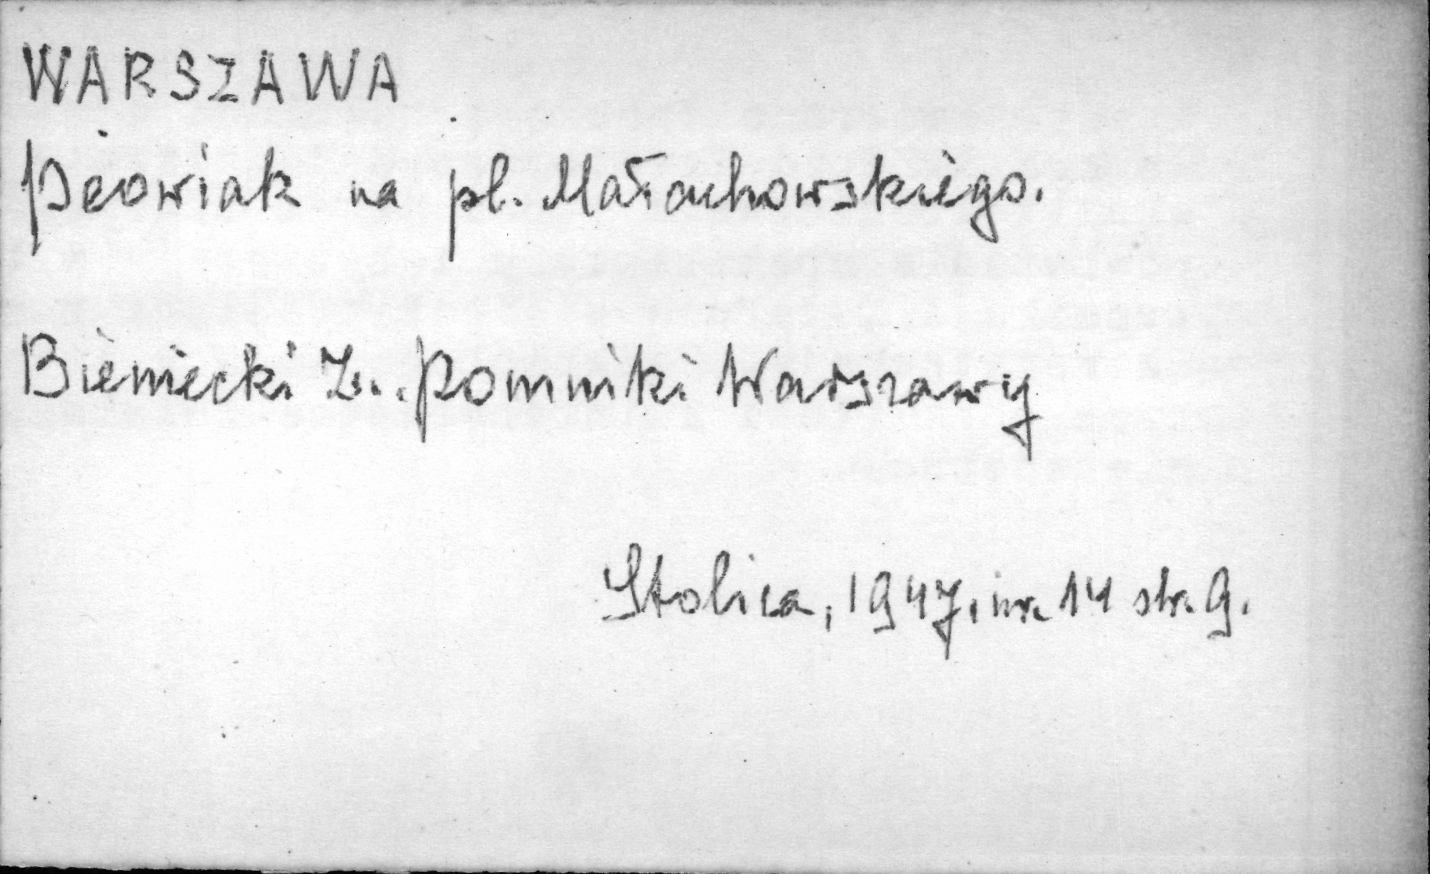 WARSZAWA
Peowiak na pl. Małachowskiego.
Bieniecki Z.. Pomniki Warszawy
Stolica, 1947, nr. 14 str. 9.